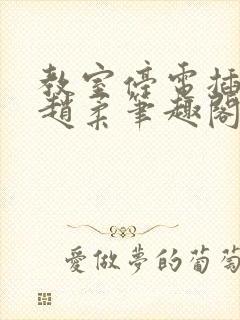 教室停電插
趙柔筆趣閣
愛做夢的葡萄